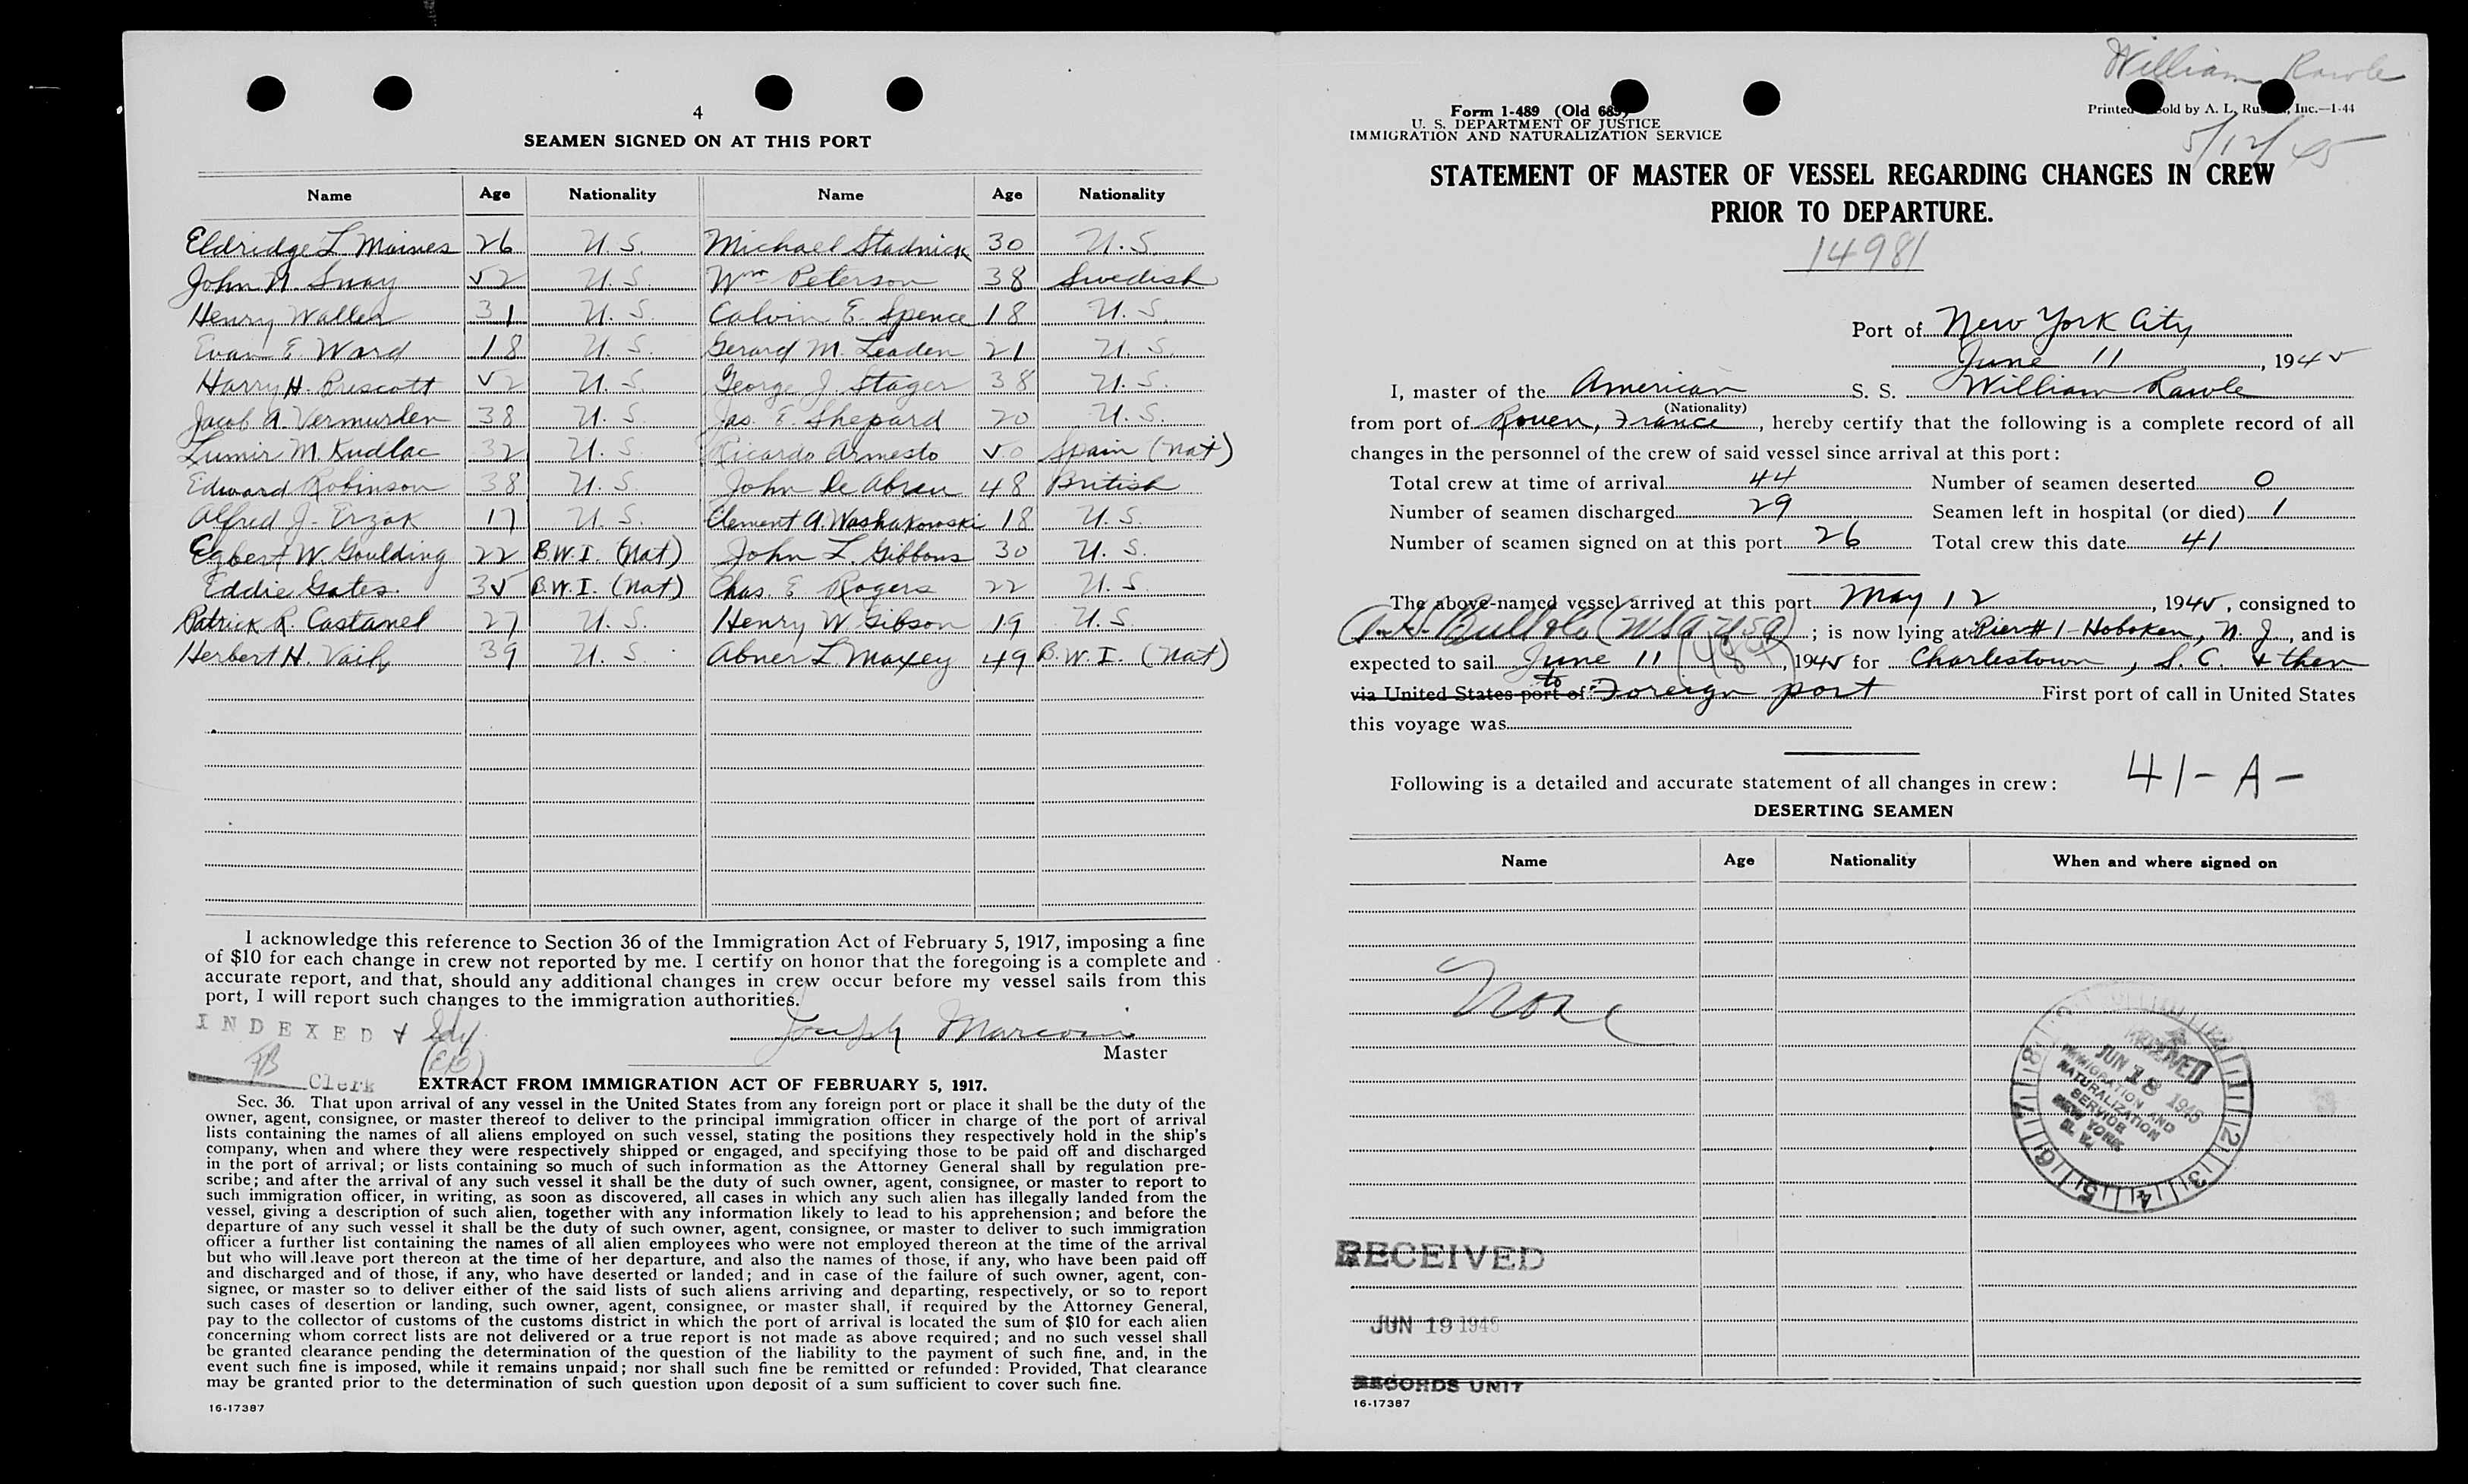 4
SEAMEN SIGNED ON AT THIS PORT
Name Age Nationality Name Age Nationality
Eldridge L Maines 26 U. S. Michael Stadnick 30 U. S.
John N. Snay 52 U. S. Wm Peterson 38 Swedish
Henry Waller 31 U. S. Calvin E. Spence 18 U. S.
Evan E. Ward 18 U. S. Gerard M. Leaden 21 U. S.
Harry H. Prescott 52 U. S. George J. Stager 38 U. S.
Jacob A. Vermurlen 38 U. S. Jas. E. Shepard 20 U. S.
Lumir M. Kudlac 32 U. S. Ricardo Armesto 50 Spain (Nat)
Edward Robinson 38 U. S. John De Abreu 48 British
Alfred J. Erzak 17 U. S. Clement A. Washakowski 18 U. S.
Egbert W. Goulding 22 B.W.I. (Nat) John L. Gibbons 30 U. S.
Eddie Gates. 35 B.W.I. (Nat) Chas. E Rogers 22 U. S.
Patrick R. Castanel 27 U. S. Henry W Gibson 19 U. S.
Herbert H. Vail 39 U. S. Abner L. Maxey 49 B.W.I. (Nat)
I acknowledge this reference to Section 36 of the Immigration Act of February 5, 1917, imposing a fine
of $10 for each change in crew not reported by me. I certify on honor that the foregoing is a complete and
accurate report, and that, should any additional changes in crew occur before my vessel sails from this
port, I will report such changes to the immigration authorities.
INDEXED
Joseph
Master
Clerk
EXTRACT FROM IMMIGRATION ACT OF FEBRUARY 5, 1917.
Sec. 36. That upon arrival of any vessel in the United States from any foreign port or place it shall be the duty of the
owner, agent, consignee, or master thereof to deliver to the principal immigration officer in charge of the port of arrival
lists containing the names of all aliens employed on such vessel, stating the positions they respectively hold in the ship's
company, when and where they were respectively shipped or engaged, and specifying those to be paid off and discharged
in the port of arrival; or lists containing so much of such information as the Attorney General shall by regulation pre-
scribe; and after the arrival of any such vessel it shall be the duty of such owner, agent, consignee, or master to report to
such immigration officer, in writing, as soon as discovered, all cases in which any such alien has illegally landed from the
vessel, giving a description of such alien, together with any information likely to lead to his apprehension; and before the
departure of any such vessel it shall be the duty of such owner, agent, consignee, or master to deliver to such immigration
officer a further list containing the names of all alien employees who were not employed thereon at the time of the arrival
but who will leave port thereon at the time of her departure, and also the names of those, if any, who have been paid off
and discharged and of those, if any, who have deserted or landed; and in case of the failure of such owner, agent, con-
signee, or master so to deliver either of the said lists of such aliens arriving and departing, respectively, or so to report
such cases of desertion or landing, such owner, agent, consignee, or master shall, if required by the Attorney General,
pay to the collector of customs of the customs district in which the port of arrival is located the sum of $10 for each alien
concerning whom correct lists are not delivered or a true report is not made as above required; and no such vessel shall
be granted clearance pending the determination of the question of the liability to the payment of such fine, and, in the
event such fine is imposed, while it remains unpaid; nor shall such fine be remitted or refunded: Provided, That clearance
may be granted prior to the determination of such question upon deposit of a sum sufficient to cover such fine.
16-17387
William Rawle
Form 1-489 (Old 689)
U. S. DEPARTMENT OF JUSTICE
IMMIGRATION AND NATURALIZATION SERVICE
Printed Sold by A. L. Inc.—1-44
5/12/45
STATEMENT OF MASTER OF VESSEL REGARDING CHANGES IN CREW
PRIOR TO DEPARTURE.
14981
Port of New York City
June 11, 1945
I, master of the American S. S. William Rawle
(Nationality)
from port of Rouen, France, hereby certify that the following is a complete record of all
changes in the personnel of the crew of said vessel since arrival at this port:
Total crew at time of arrival 44 Number of seamen deserted 0
Number of seamen discharged 29 Seamen left in hospital (or died) 1
Number of seamen signed on at this port 26 Total crew this date 41
The above-named vessel arrived at this port May 12, 1945, consigned to
A. H. Bull & Co (WSA USA); is now lying at Pier # 1 - Hoboken, N. J., and is
expected to sail June 11, 1945 for Charlestown, S. C. & then
via United States port of to Foreign port First port of call in United States
this voyage was
Following is a detailed and accurate statement of all changes in crew:
41-A-
DESERTING SEAMEN
Name Age Nationality When and where signed on
None
RECEIVED
JUN 18 1945
IMMIGRATION AND
NATURALIZATION
SERVICE
NEW YORK
N. Y.
RECEIVED
JUN 19 1945
RECORDS UNIT
16-17387